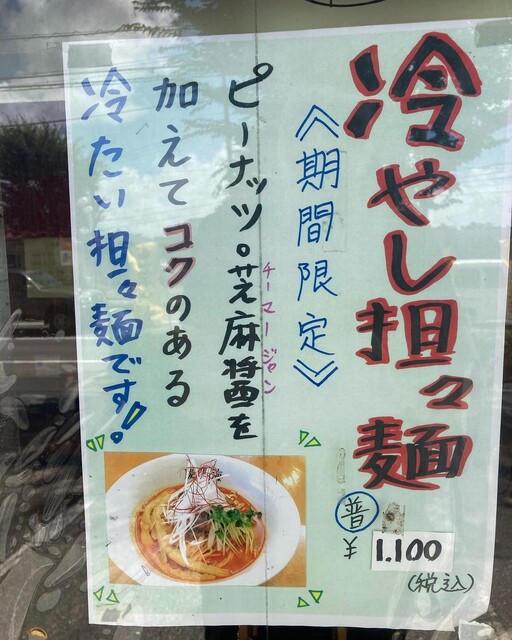 冷やし担々麺
《期間限定》
ピーナッツ。芝麻醤を
チーマージャン
加えてコクのある
冷たい担々麺です!!
普
¥1.100
(税込)